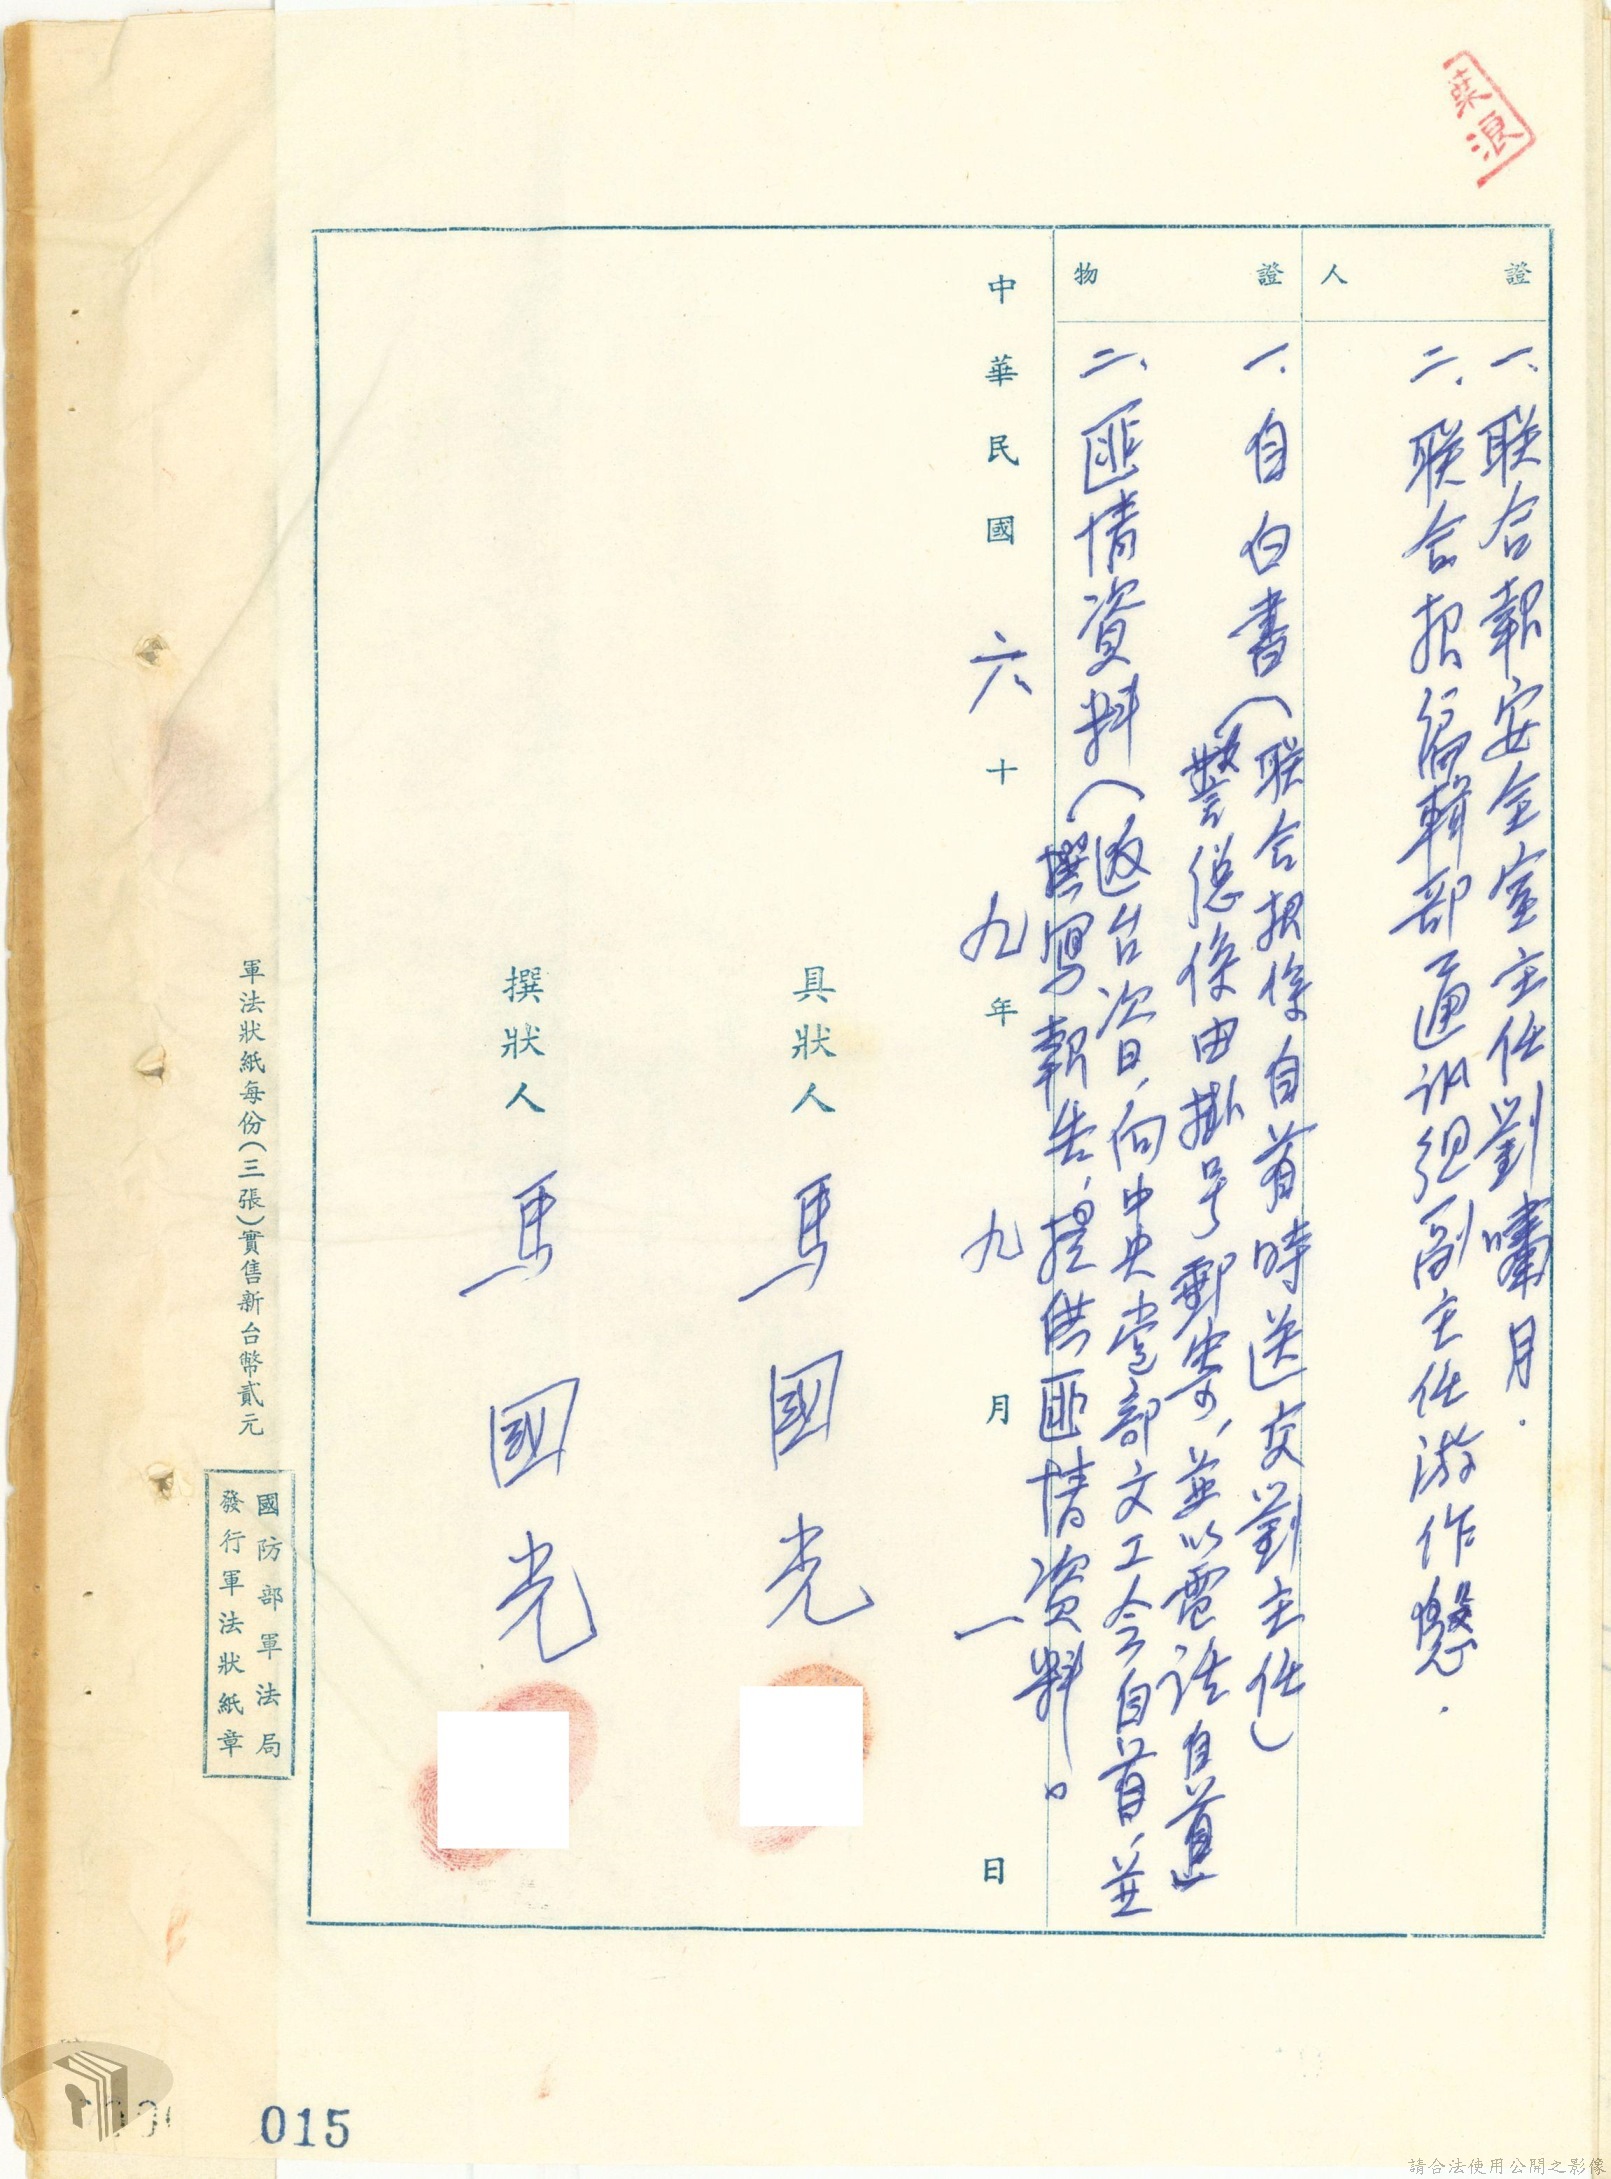 證人
一、联合報安全室主任劉嘯月.
二、联合报编輯部通訊组副主任游作懋.
證物
一、自白書(联合报係自首時送交劉主任)
警總係由掛号郵寄,並以電話自首
二、匪情資料(返台次日,向中央党部文工会自首,並
撰寫報告,提供匪情資料。
中華民國六十九年九月一日
具狀人 馬國光
撰狀人 馬國光
軍法狀紙每份(三張)實售新台幣貳元
國防部軍法局
發行軍法狀紙章
015
請合法使用公開之影像